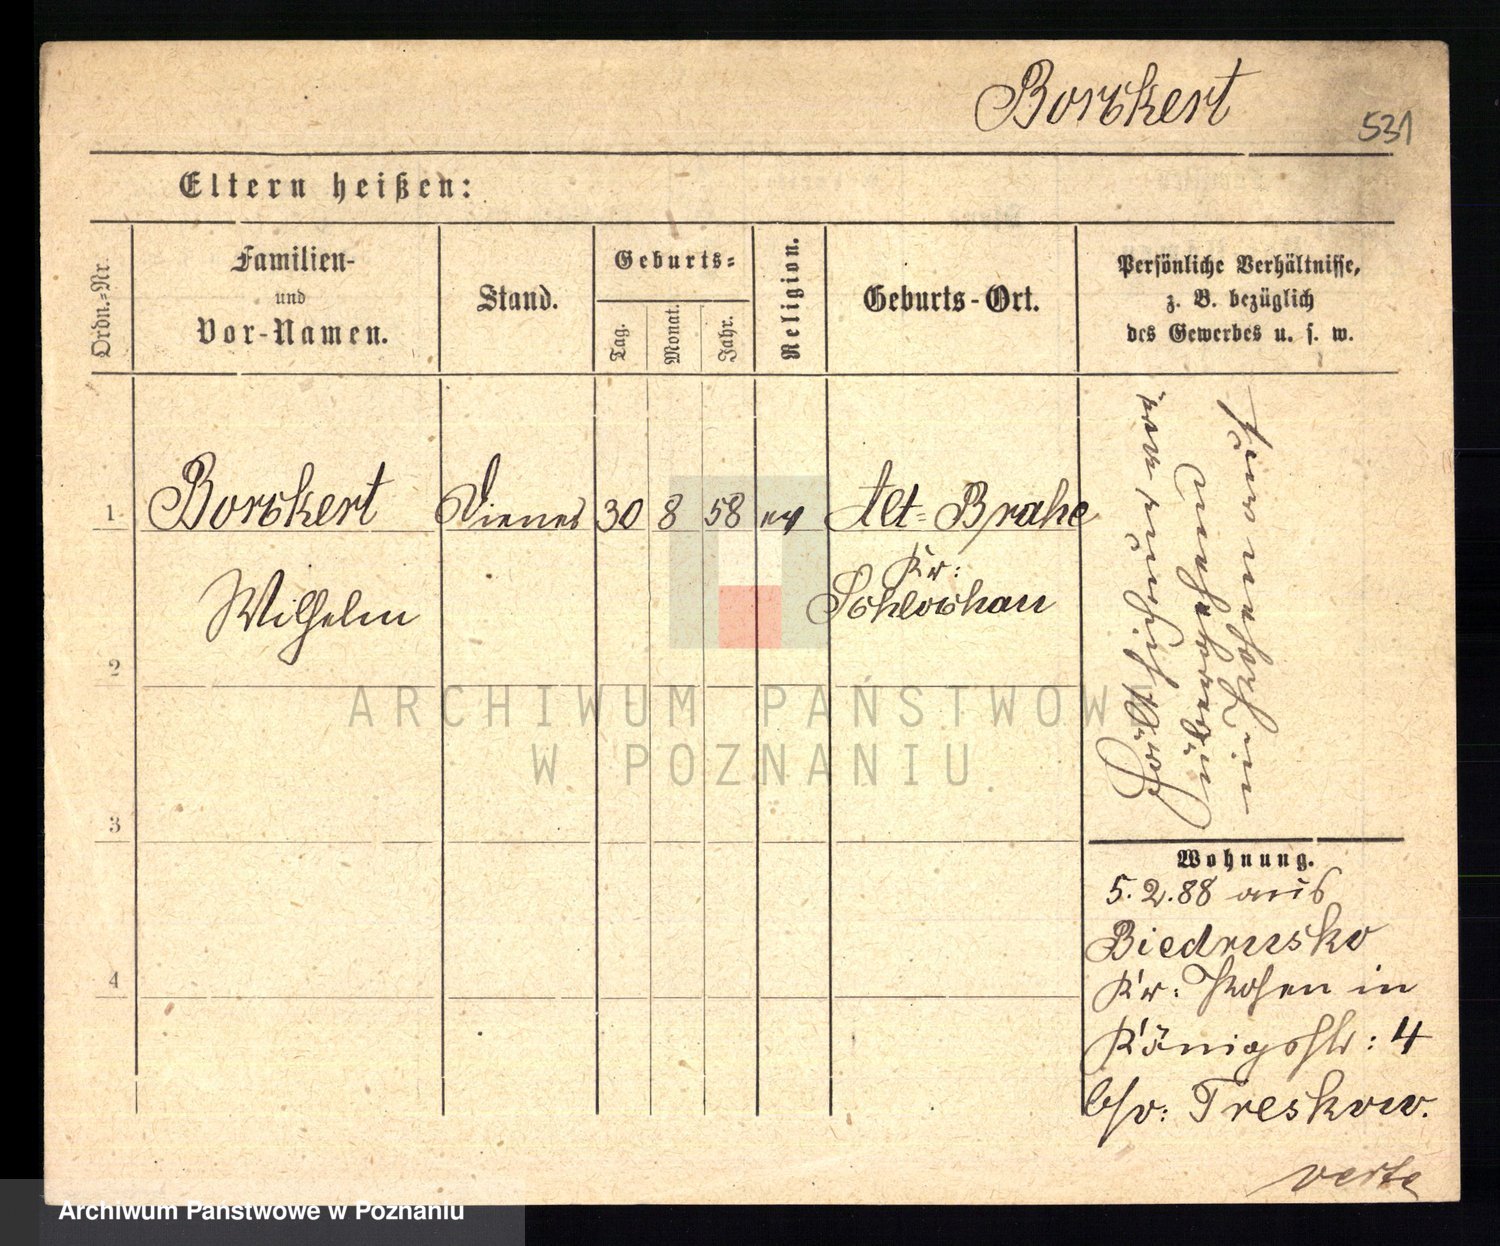 Borckert
531
Eltern heißen:
Ordn.=Nr.
Familien-
und
Vor-Namen.
Stand.
Geburts=
Tag.
Monat.
Jahr.
Religion.
Geburts-Ort.
Persönliche Verhältnisse,
z. B. bezüglich
des Gewerbes u. s. w.
1
Borckert
Wilhelm
Diener
30
8
58
ev
Alt=Brahe
Kr:
Schlochau
2
3
4
Wohnung.
5.2.88 aus
Biedrusko
Kr: Posen in
Königsstr: 4
b/v: Treskow.
verte
ARCHIWUM PAŃSTWOWE
W POZNANIU
Archiwum Państwowe w Poznaniu